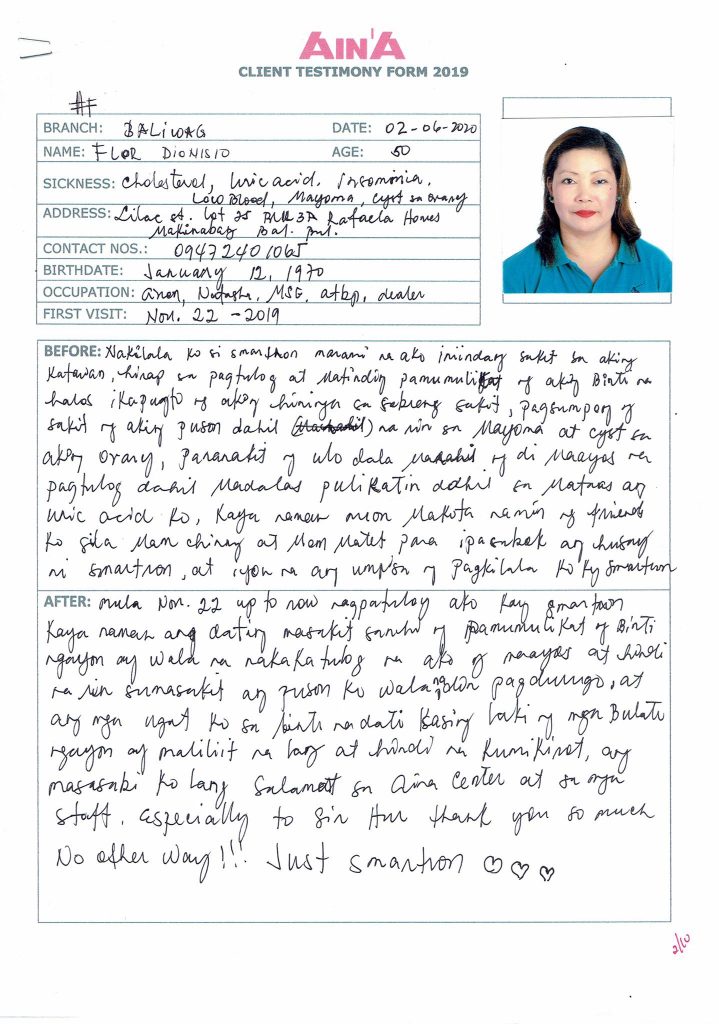 AIN'A
CLIENT TESTIMONY FORM 2019
#F
BRANCH: BALIWAG DATE: 02-06-2020
NAME: FLOR DIONISIO AGE: 50
SICKNESS: Cholesterol, Uric acid, Insominia,
Low Blood, Mayoma, cyst sa ovary
ADDRESS: Lilac st. Lot 35 Blk 3A Rafaela Homes
Makinabay Bal. Bul.
CONTACT NOS.: 09472401065
BIRTHDATE: January 12, 1970
OCCUPATION: Avon, Natasha, MSE, atbp, dealer
FIRST VISIT: Nov. 22 - 2019
BEFORE: Nakilala ko si smartron marami na ako iniindang sakit sa aking
Katawan, hirap sa pagtulog at Matinding pamumulikat ng aking Binti na
halos ikapugto ng aking hininga sa sobrang sakit, pagsumpong ng
sakit ng aking puson dahil na rin sa Mayoma at cyst sa
aking ovary, Pananakit ng ulo dala ng di Maayos na
pagtulog dahil Madalas pulikatin dahil sa Mataas ang
Uric acid ko, Kaya naman noon Makita namin ng friends
ko sila Mam chinay at Mam Matet para ipasubok ang husay
ni smartron, at iyon na ang umpisa ng Pagkilala Ko Ky Smartron
AFTER: mula Nov. 22 up to now nagpatuloy ako kay smartron
Kaya naman ang dating masakit ng Pamumulikat ng Binti
ngayon ay wala na nakakatulog na ako ng maayos at hindi
na rin sumasakit ang puson ko wala na din pagdurugo, at
ang mga ugat ko sa binti na dati kasing laki ng mga Bulate
ngayon ay maliliit na lang at hindi na Kumikirot, ang
masasabi ko lang Salamat sa Aina Center at sa mga
staff. especially to Sir thank you so much
No other way!!! Just smartron ♡ ♡ ♡
2/10